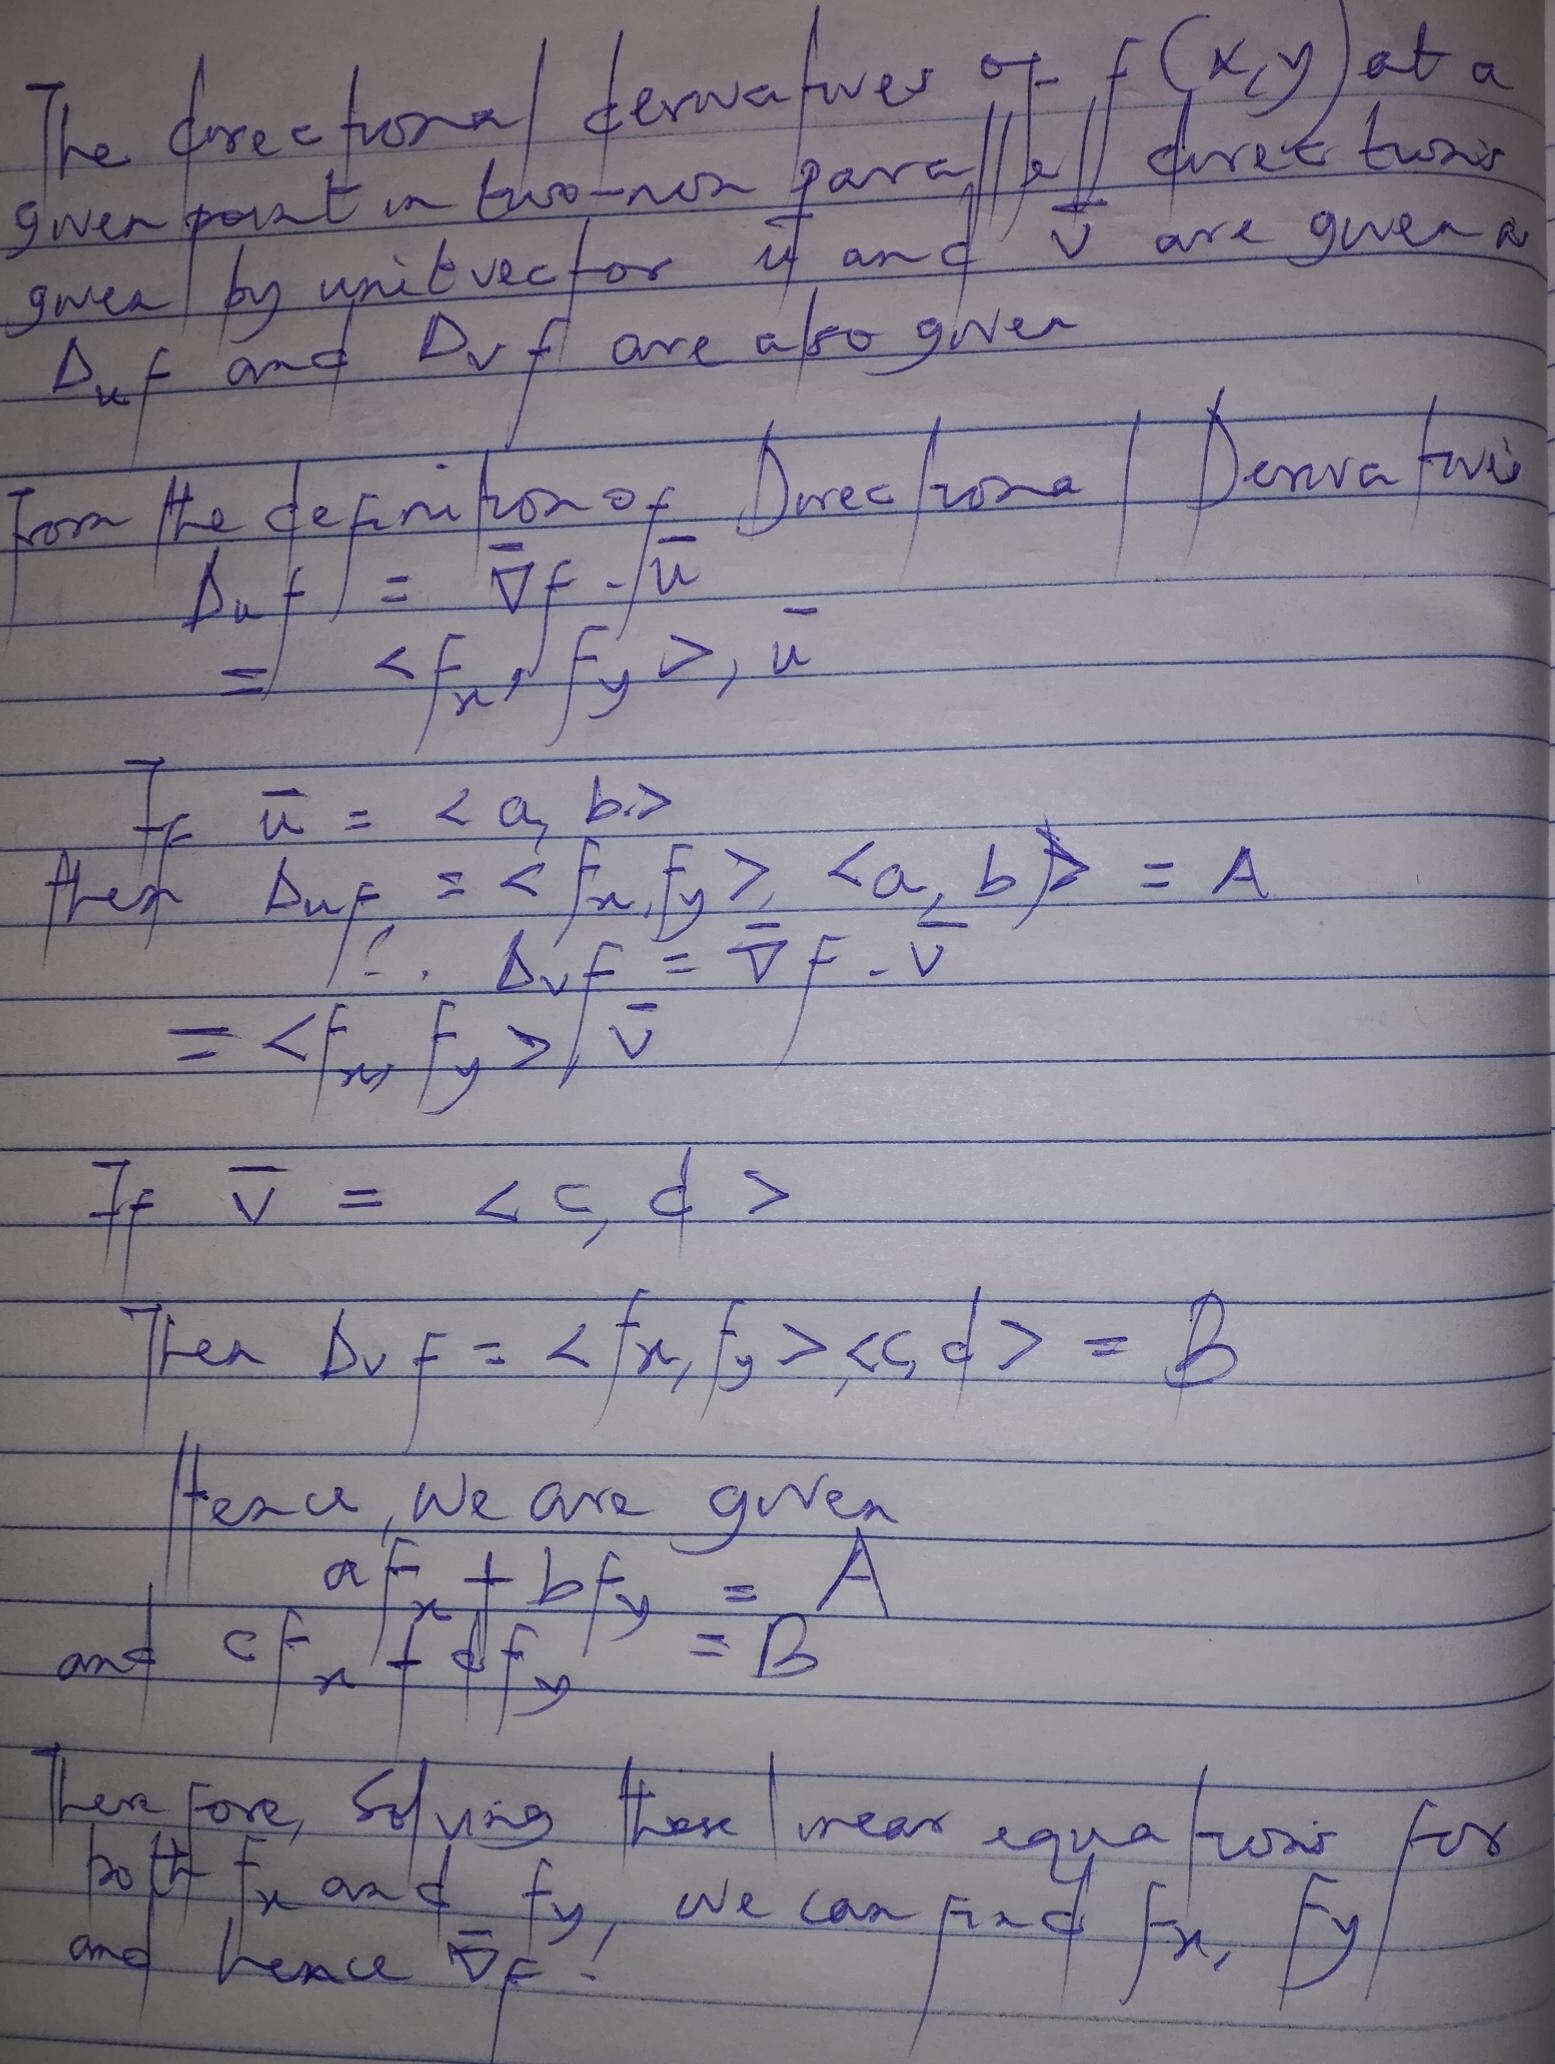 The directional derivatives of f(x,y) at a
given point in two-non parallel directions
given by unit vector ū and v̄ are given a
Duf and Dvf are also given
From the definition of Directional Derivatives
Duf = ∇̄f . ū
= <fx, fy>, ū
If ū = <a, b>
then Duf = <fx, fy>, <a, b> = A
!. Dvf = ∇̄f . v̄
= <fx, fy>, v̄
If v̄ = <c, d>
Then Dvf = <fx, fy>, <c, d> = B
Hence, we are given
afx + bfy = A
and cfx + dfy = B
Therefore, Solving these linear equations for
both fx and fy, we can find fx, fy
and hence ∇̄f!